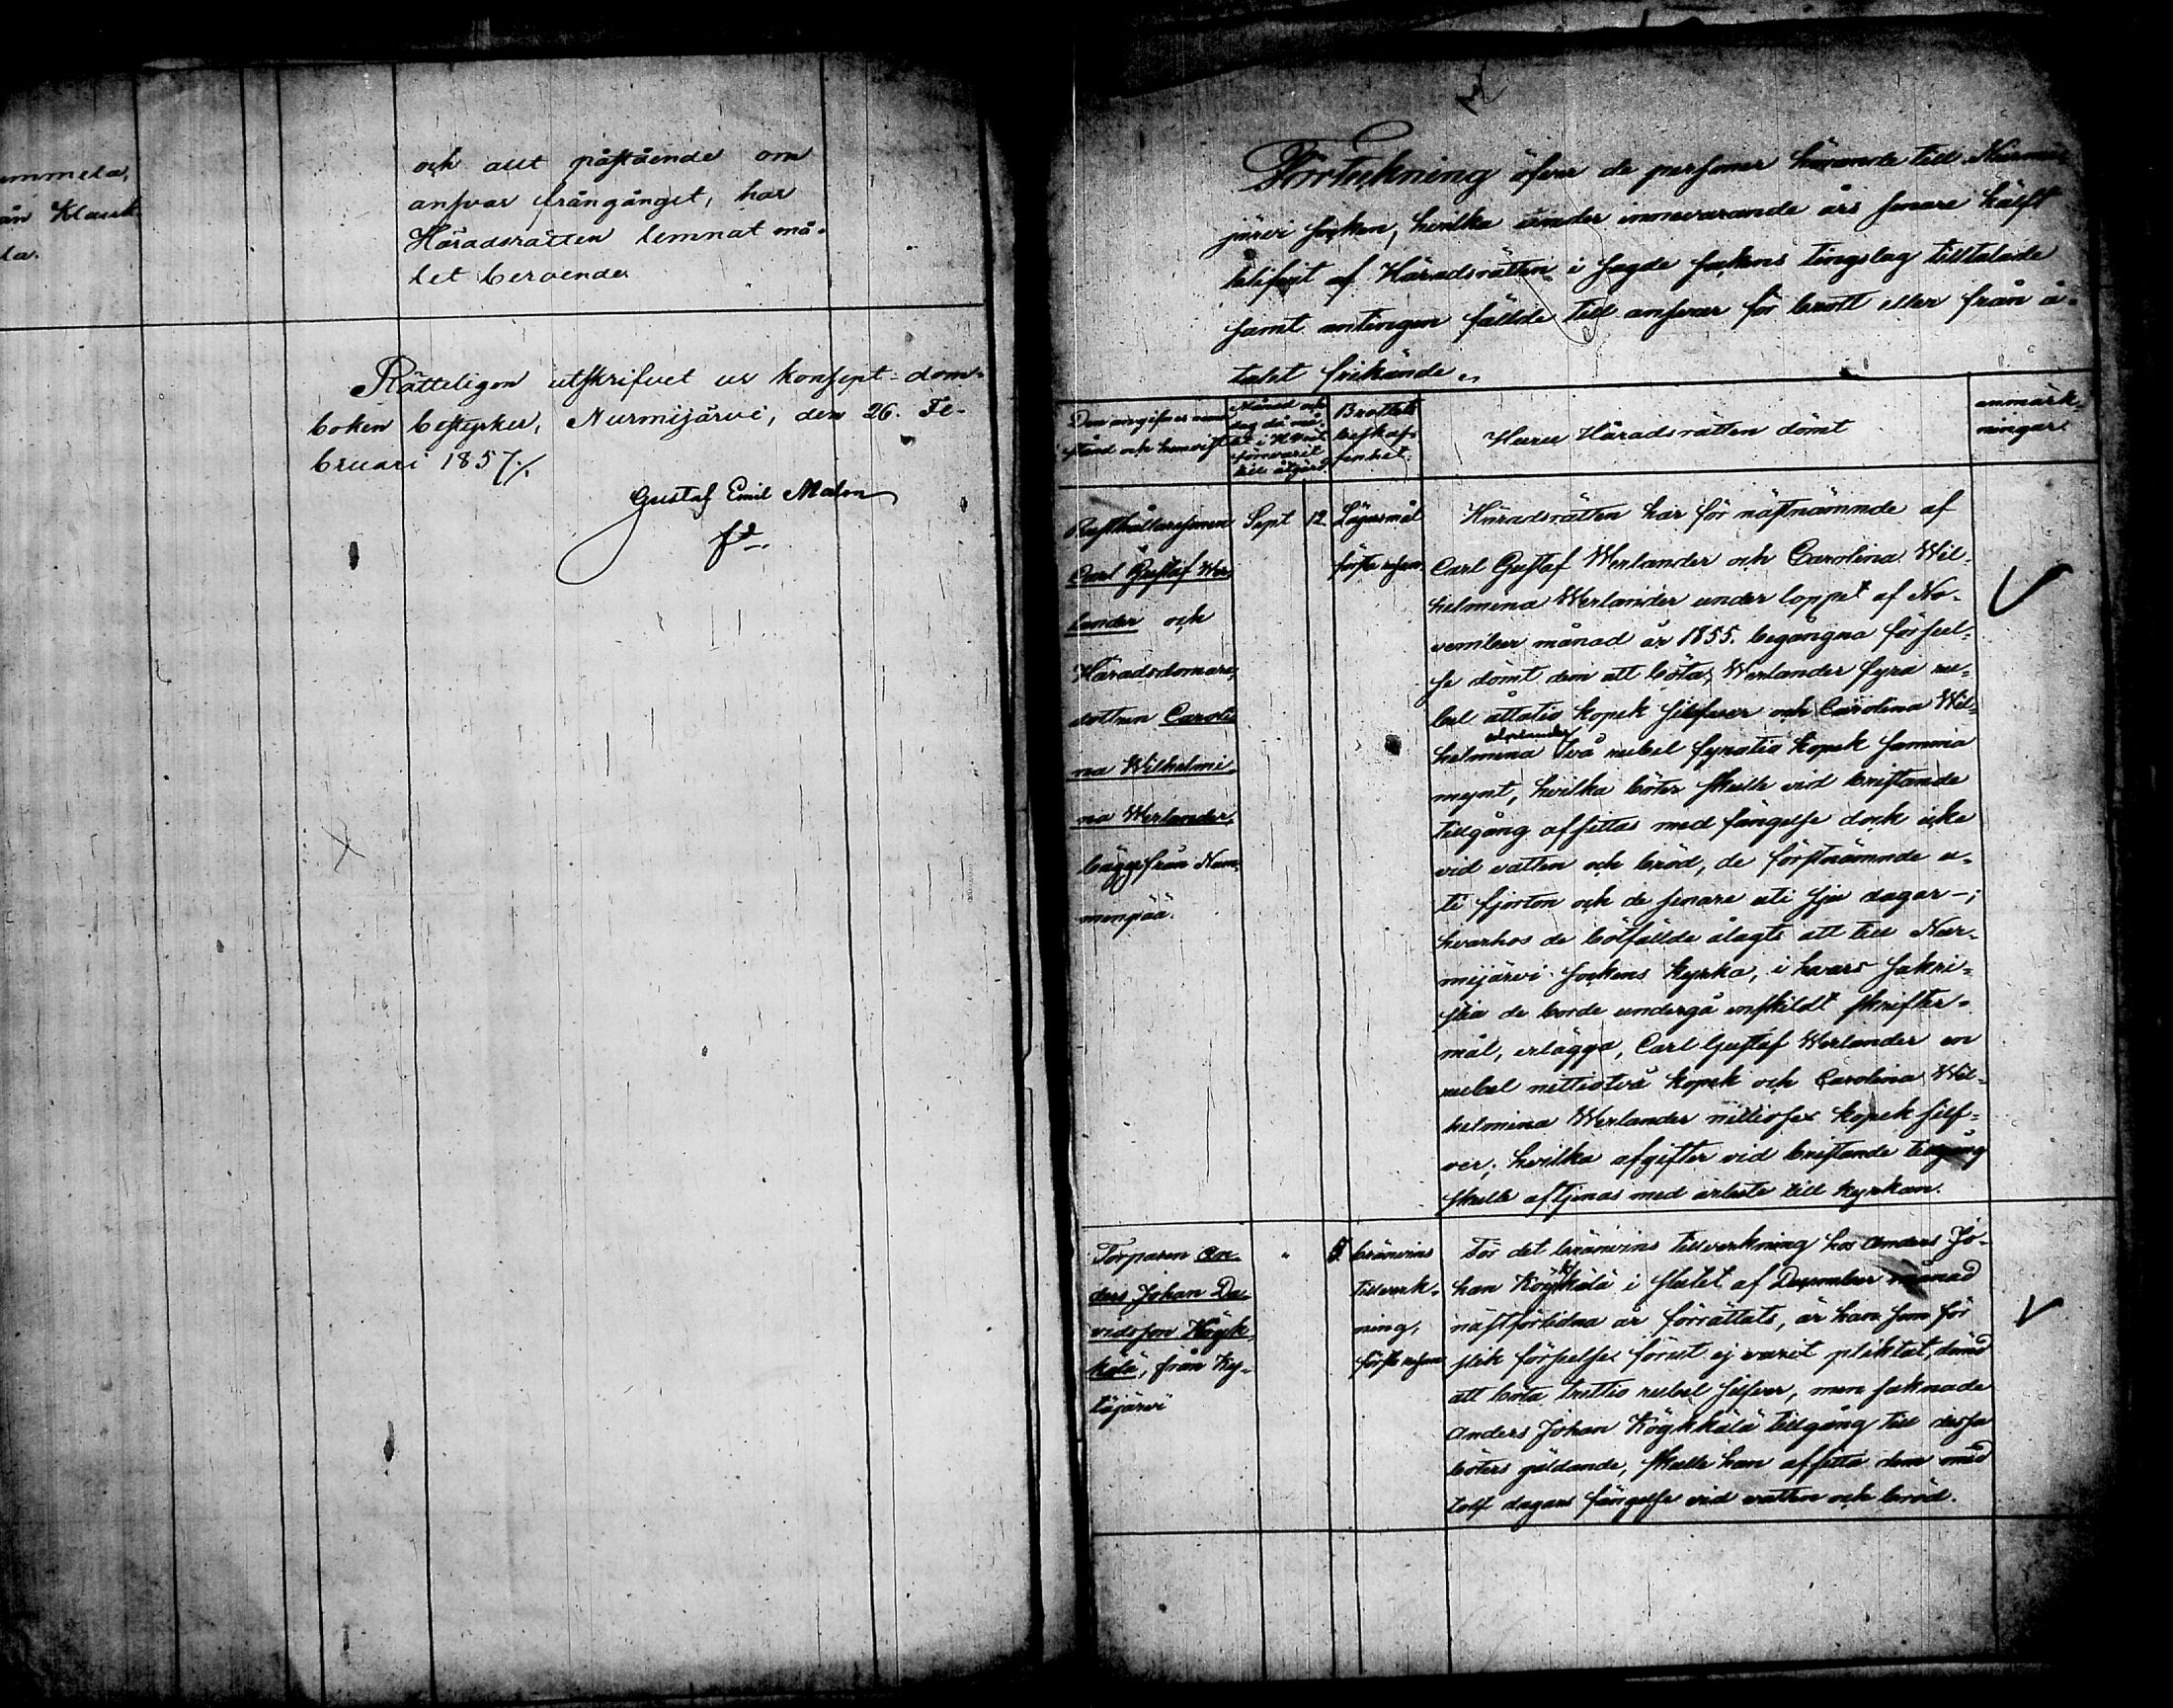 ummela,
ån Klauk
la.
och allt påstående om
ansvar frångånget, har
Häradsrätten lemnat må-
let beroende
Rätteligen utskrifvet ur konsept-dom-
boken bestyrker, Nurmijärvi, den 26. Fe-
bruari 1857./.
Gustaf Emil Malm
Förteckning öfver de personer hörande till Nurmi-
järvi socken, hvilka under innevarande års senare hälft
blifvit af Häradsrätten i sagde sockens tingslag tilltalade
samt antingen fällde till ansvar för brott eller från å-
talet frikände.
Den angifnes namn
stånd och hemvist
Månad och
dag då må-
let i H.Rätt
förevarit
till åtgärd
Brottets
beskaf-
fenhet.
Huru Häradsrätten dömt
anmärk-
ningar.
Rusthållaresonen
Carl Gustaf Wer-
lander och
Häradsdomare
dottren Caroli-
na Wilhelmi-
na Werlander,
bägge från Num-
menpää.
Sept 12
Lägersmål
första resan.
Häradsrätten har för nästnämnde af
Carl Gustaf Werlander och Carolina Wil-
helmina Werlander under loppet af No-
vember månad år 1855. begångna förseel-
se dömt dem att böta, Werlander fyra ru-
bel åttatio kopek silfver och Carolina Wil-
helmina Werlander två rubel fyratio kopek samma
mynt, hvilka böter skulle vid bristande
tillgång afsittas med fängelse dock icke
vid vatten och bröd, de förstnämnde u-
ti fjorton och de senare uti sju dagar-;
hvarhos de bötfällde ålagts att till Nur-
mijärvi sockens kyrka, i hvars sakri-
stia de borde undergå enskildt skrifter-
mål, erlägga, Carl Gustaf Werlander en
rubel nittiotvå kopek och Carolina Wil-
helmina Werlander nittiosex kopek silf-
ver; hvilka afgifter vid bristande tillgång
skulle aftjenas med arbete till kyrkan.
Torparen An-
ders Johan Da-
vidsson Köyk-
kälä, från Ky-
täjärvi
"
bränvins
tillverk-
ning,
första resan
För det bränvins tillverkning hos Anders Jo-
han Köykkälä i slutet af December månad
nästförlidna år förrättats, är han som för
slik förseelse förut ej varit pliktat, dömd
att böta trettio rubel silfver, men saknade
Anders Johan Köykkälä tillgång till dessa
böters gäldande, skulle han afsitta dem med
tolf dagars fängelse vid vatten och bröd.